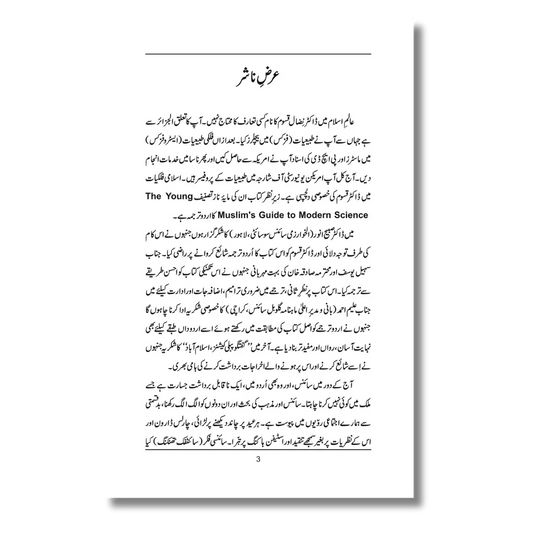 عرضِ ناشر
عالمِ اسلام میں ڈاکٹر نضال قسوم کا نام کسی تعارف کا محتاج نہیں۔ آپ کا تعلق الجزائر سے
ہے جہاں سے آپ نے طبیعیات (فزکس) میں بیچلرز کیا۔ بعد ازاں فلکی طبیعیات (ایسٹروفزکس)
میں ماسٹرز اور پی ایچ ڈی کی اسناد آپ نے امریکہ سے حاصل کیں اور پھر ناسا میں خدمات انجام
دیں۔ آج کل آپ امریکن یونیورسٹی آف شارجہ میں طبیعیات کے پروفیسر ہیں۔ اسلامی فلکیات
میں ڈاکٹر قسوم کی خصوصی دلچسپی ہے۔ زیرِ نظر کتاب ان کی مایۂ ناز تصنیف The Young
Muslim's Guide to Modern Science کا اردو ترجمہ ہے۔
میں ڈاکٹر صبیح انور (الخوارزمی سائنس سوسائٹی، لاہور) کا شکر گزار ہوں جنہوں نے اس کام
کی طرف توجہ دلائی اور ڈاکٹر قسوم کو اس کتاب کا اُردو ترجمہ شائع کروانے پر راضی کیا۔ جناب
سہیل یوسف اور محترمہ صادقہ خان کی بہت مہربانی جنہوں نے اس تکنیکی کتاب کو احسن طریقے
سے ترجمہ کیا۔ اس کتاب پر نظرِ ثانی، ترجمے میں ضروری ترامیم، اضافہ جات اور ادارت کیلئے میں
جناب علیم احمد (بانی و مدیرِ اعلیٰ ماہنامہ گلوبل سائنس، کراچی) کا خصوصی شکریہ ادا کرنا چاہوں گا
جنہوں نے اردو ترجمے کو اصل کتاب کی مطابقت میں رکھتے ہوئے اسے اردو داں طبقے کیلئے بھی
نہایت آسان، رواں اور مفید تر بنا دیا ہے۔ آخر میں "گفتگو پبلی کیشنز، اسلام آباد" کا شکریہ جنہوں
نے اِسے شائع کرنے اور اس پر ہونے والے اخراجات برداشت کرنے کی ہامی بھری۔
آج کے دور میں سائنس، اور وہ بھی اُردو میں، ایک ناقابلِ برداشت جسارت ہے جسے
ملک میں کوئی نہیں کرنا چاہتا۔ سائنس اور مذہب کی بحث اور ان دونوں کو الگ الگ رکھنا، بدقسمتی
سے ہمارے اجتماعی رویوں میں پیوست ہے۔ ہر عید پر چاند دیکھنے پر لڑائی، چارلس ڈارون اور
اس کے نظریات پر بغیر سمجھے تنقید اور اسٹیفن ہاکنگ پر تبرا۔ سائنسی فکر (سائنٹفک تھنکنگ) کیا
3